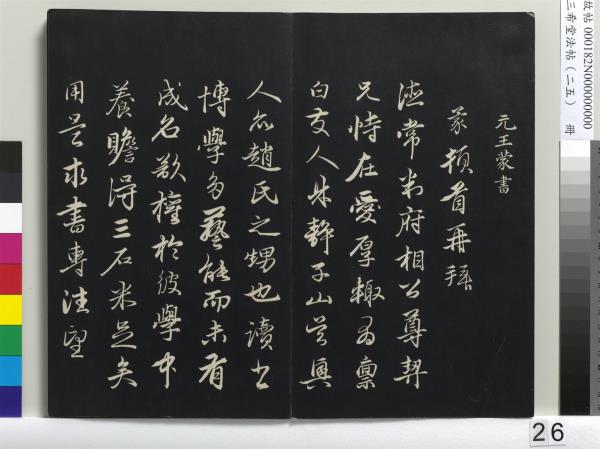 故帖 000182N000000000
三希堂法帖(二五) 冊
元王蒙書
蒙頓首再拜
德常判府相公尊契
兄恃在愛厚輒為稟
白友人朱靜子山吳興
人亦趙氏之甥也讀書
博學多藝能而未有
成名欲權於彼學中
養贍得三石米足矣
用是求書專注望
26